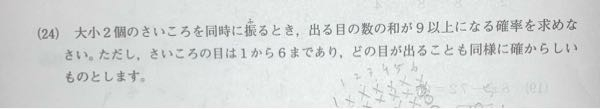 (24) 大小2個のさいころを同時に振るとき、出る目の数の和が9以上になる確率を求めな
さい。ただし、さいころの目は1から6まであり、どの目が出ることも同様に確からしい
ものとします。
1 2 3 4 5 6